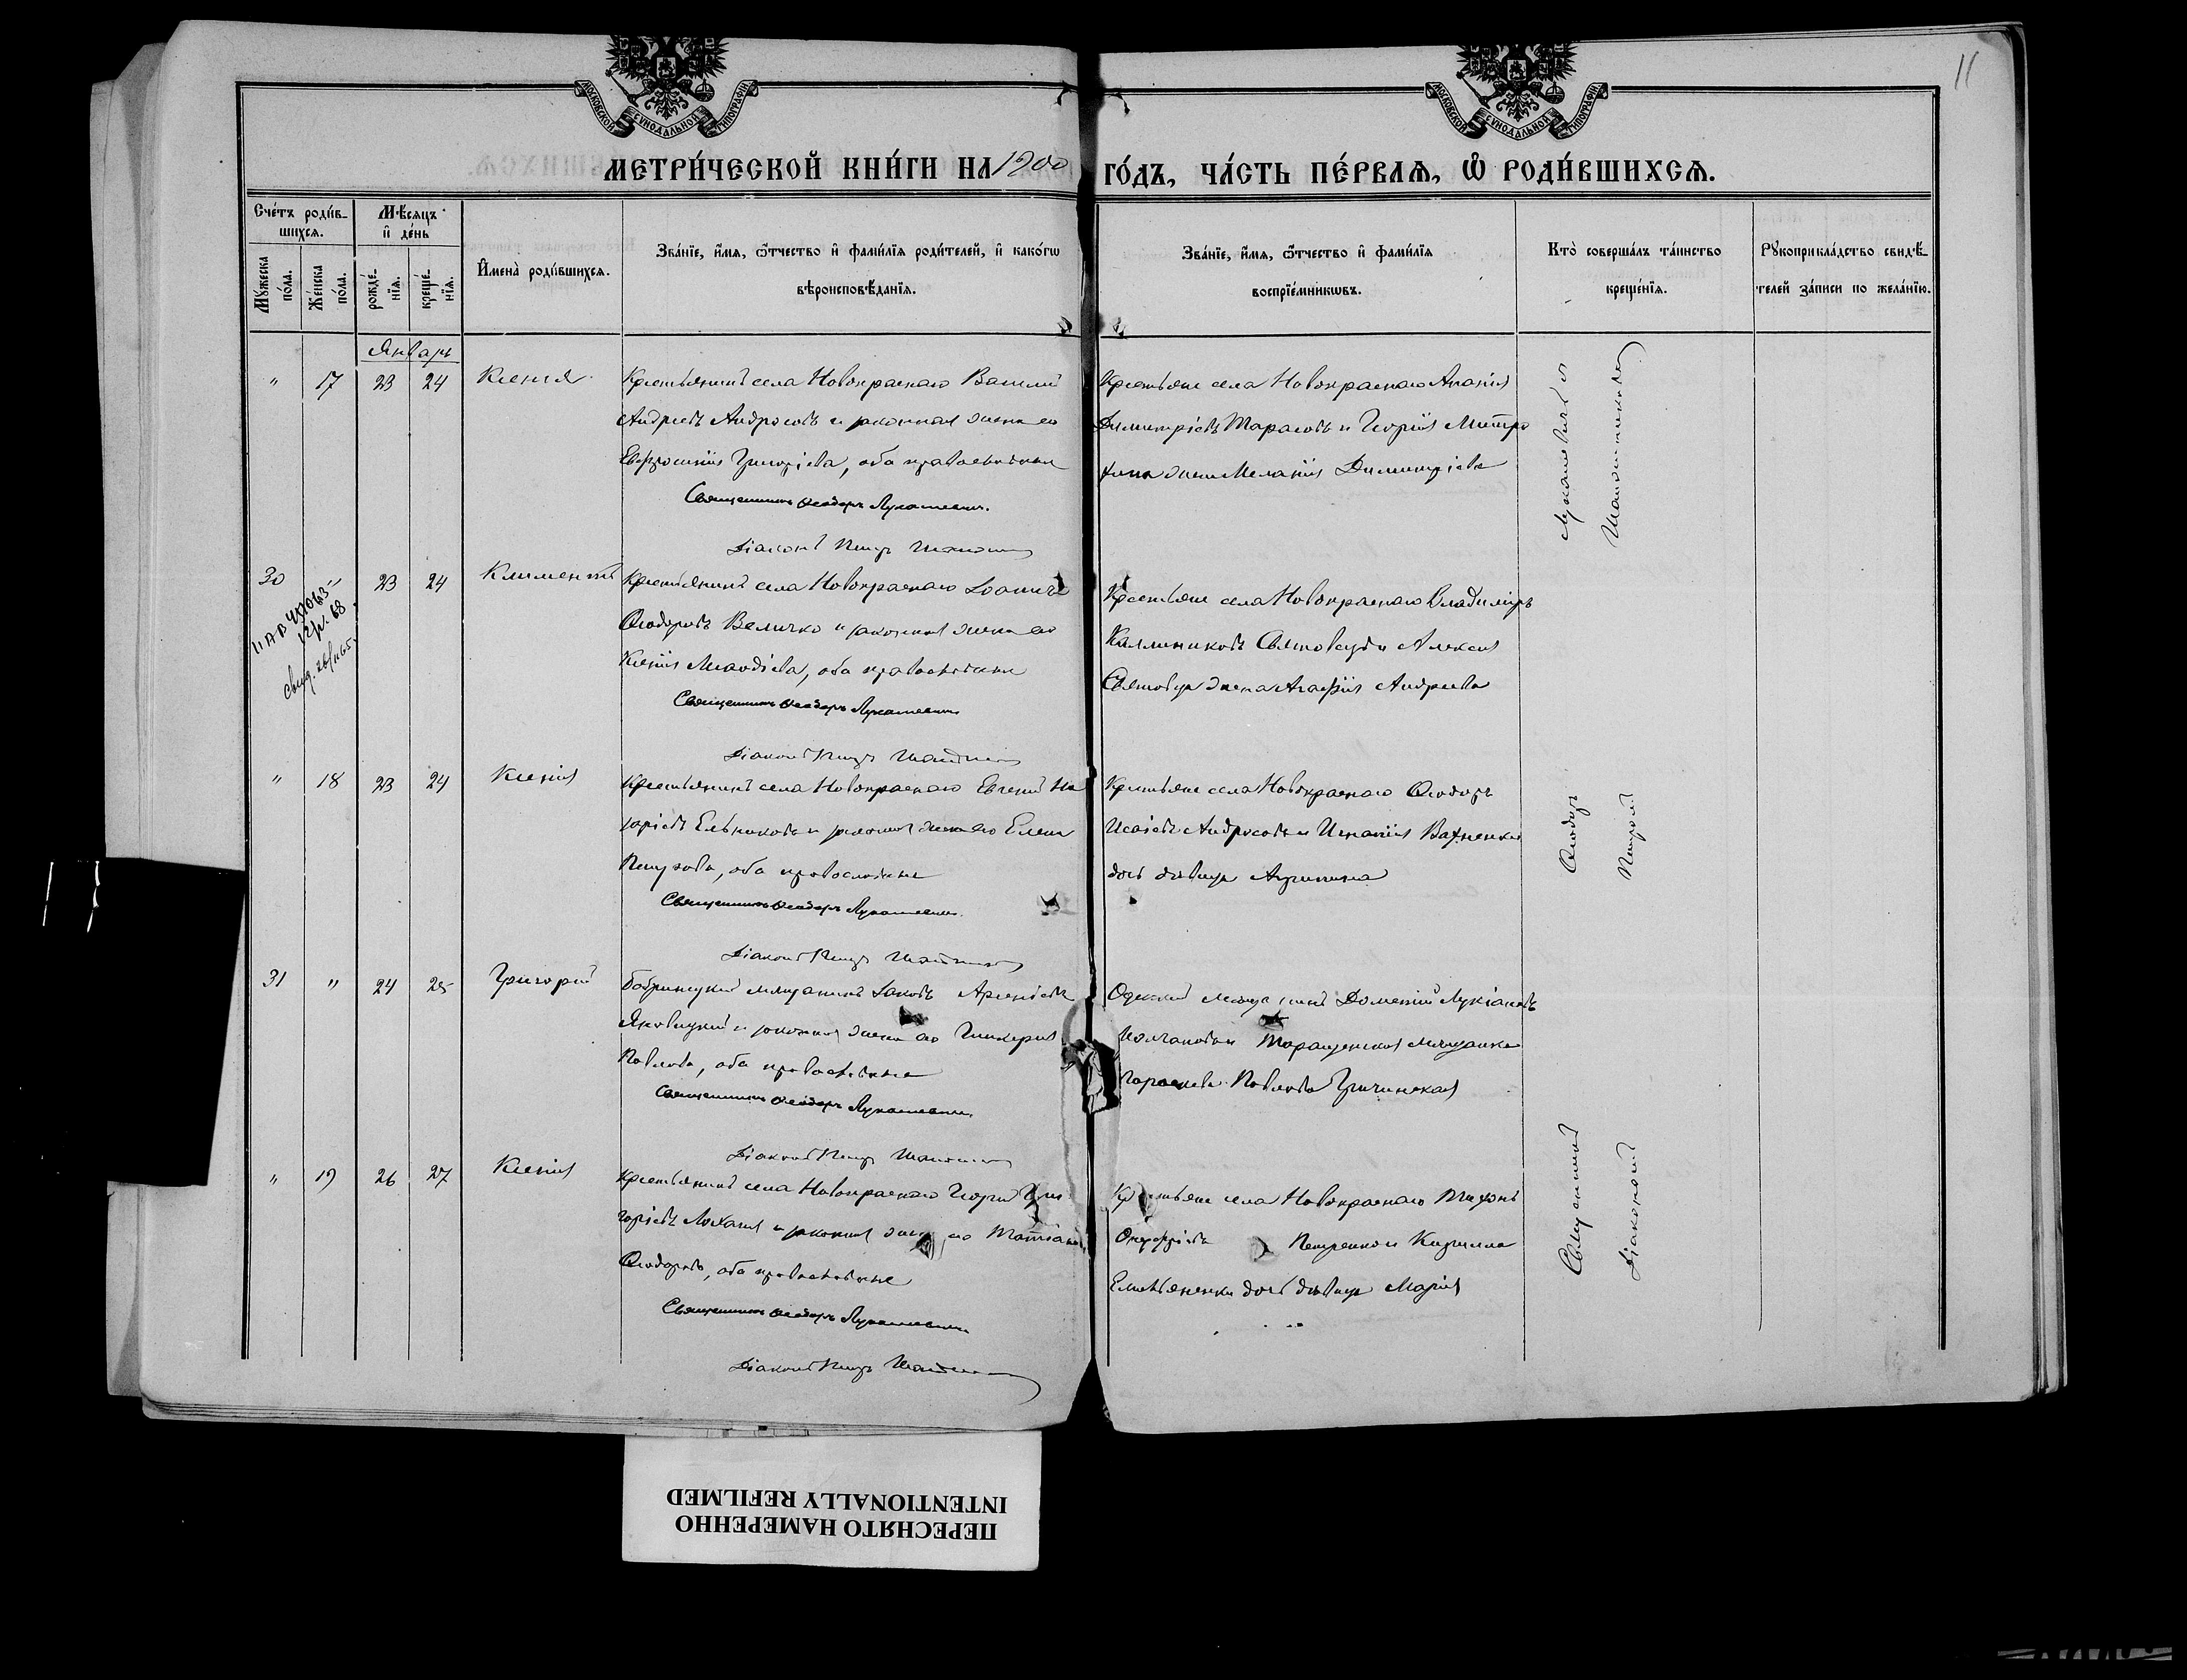 11
МОСКОВСКОЙ СУНОДАЛЬНОЙ ТИПОГРАФІИ
МОСКОВСКОЙ СУНОДАЛЬНОЙ ТИПОГРАФІИ
МЕТРИ́ЧЕСКОЙ КНИ́ГИ НА 1900 ГО́ДЪ, ЧА́СТЬ ПЕ́РВАѦ, Ѽ РОДИ́ВШИХСѦ.
Сче́тъ роди́в-
шихся.
Мѣ́сяцъ
и҆ де́нь
Му́жеска по́ла.
Же́нска по́ла.
рожде́-
нїѧ.
креще́-
нїѧ.
И҆мена̀ роди́вшихся.
Зва́нїе, и҆́мѧ, ѻ҆́тчество и҆ фами́лїѧ роди́телей, и҆ како́гѡ
вѣроисповѣ́данїѧ.
Зва́нїе, и҆́мѧ, ѻ҆́тчество и҆ фами́лїѧ
воспрїе́мникѡвъ.
Кто̀ соверша́лъ та́инство
креще́нїѧ.
Рꙋкоприкла́дство свидѣ́-
телей за́писи по жела́нїю.
Январь
" 17 23 24 Ксенія
Крестьянинъ села Новокраснаго Василій
Андреевъ Андросовъ и законная жена его
Евфросинія Григоріева, оба православные
Священникъ Ѳеодоръ Лукашевичъ.
Діаконъ Петръ
Крестьяне села Новокраснаго Ананія
Димитріевъ Тарасовъ и Георгія Митро
фана жена Меланія Димитріева
30 23 24 Климентій
Крестьянинъ села Новокраснаго Іоаннъ
Ѳеодоровъ Величко и законная жена его
Ксенія Меѳодіева, оба православные
Священникъ Ѳеодоръ Лукашевичъ
Діаконъ Петръ
Крестьяне села Новокраснаго Владиміръ
Каллиниковъ Святовецъ и Алексія
Святовца жена Агафія Андреева
" 18 23 24 Ксенія
Крестьянинъ села Новокраснаго Евгеній На
заріевъ Ельниковъ и законная жена его Елена
Петрова, оба православные
Священникъ Ѳеодоръ Лукашевичъ
Діаконъ Петръ
Крестьяне села Новокраснаго Ѳеодоръ
Исаіевъ Андросовъ и Игнатія Вахненка
дочь дѣвица Агрипина
31 " 24 25 Григорій
Бобринецкій мѣщанинъ Іаковъ Арсеніевъ
Яновицкій и законная жена его Гликерія
Павлова, оба православные
Священникъ Ѳеодоръ Лукашевичъ
Діаконъ Петръ
Одесскій мѣщанинъ Дометій Лукіановъ
Молчановъ и Таращенская мѣщанка
Параскева Павлова Гричинская
" 19 26 27 Ксенія
Крестьянинъ села Новокраснаго Георгій Гри
горіевъ Лоханя и законная жена его Татіана
Ѳеодорова, оба православные
Священникъ Ѳеодоръ Лукашевичъ
Діаконъ Петръ
Крестьяне села Новокраснаго Тихонъ
Онуфріевъ Петренко и Кирилла
Емельяненка дочь дѣвица Марія
Священникъ Ѳеодоръ Лукашевичъ и
Діаконъ Петръ
ПЕРЕСНЯТО НАМЕРЕННО
INTENTIONALLY REFILMED